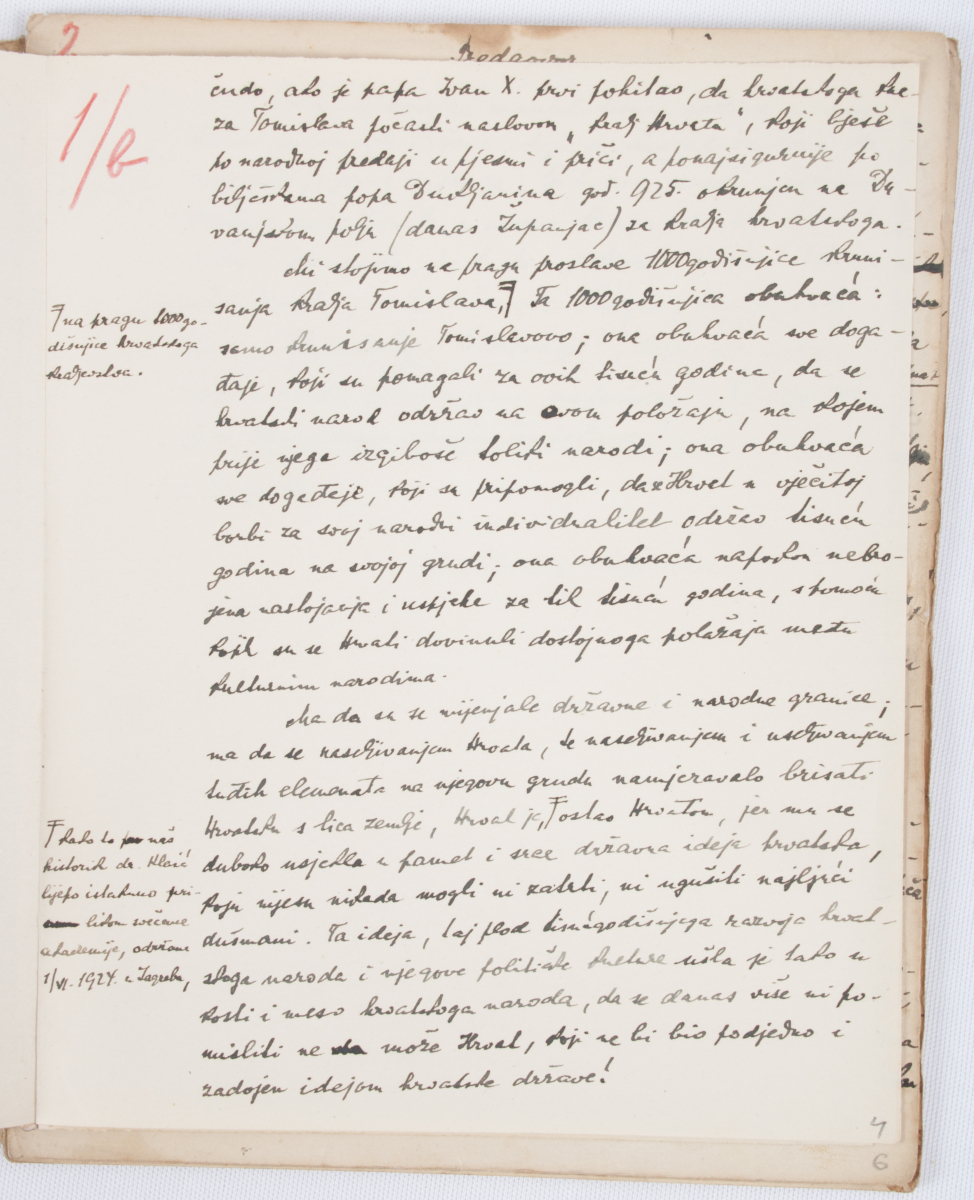 2
1/b
čudo, ako je papa Ivan X. prvi pohitao, da hrvatskoga kne-
za Tomislava počasti naslovom „kralj Hrvata", koji bješe
po narodnoj predaji u pjesmi i priči, a ponajsigurnije po
bilješkama popa Dukljanina god. 925. okrunjen na Du-
vanjskom polju (danas Županjac) za kralja hrvatskoga.
Mi stojimo na pragu proslave 1000godišnjice kruni-
sanja kralja Tomislava, Ta 1000godišnjica obuhvaća:
samo krunisanje Tomislavovo; ona obuhvaća sve doga-
đaje, koji su pomagali za ovih tisuću godina, da se
hrvatski narod održao na ovom položaju, na kojem
prije njega izgiboše toliki narodi; ona obuhvaća
sve događaje, koji su pripomogli, da Hrvat u vječitoj
borbi za svoj narodni individualitet održao tisuću
godina na svojoj grudi; ona obuhvaća napokon nebro-
jena nastojanja i uspjehe za tih tisuću godina, s pomoću
kojih su se Hrvati dovinuli dostojnoga položaja među
kulturnim narodima.
Ma da su se mijenjale državne i narodne granice;
ma da se naseljivanjem Hrvata, te naseljivanjem i useljivanjem
tuđih elemenata na njegovu grudu namjeravalo brisati
Hrvatsku s lica zemlje, Hrvat je, ostao Hrvatom, jer mu se
duboko usjekla u pamet i srce državna ideja hrvatska,
koju nijesu nikada mogli ni zatrti, ni ugušiti najljući
dušmani. Ta ideja, taj plod tisućgodišnjega razvoja hrvat-
skoga naroda i njegove političke kulture ušla je tako u
kosti i meso hrvatskoga naroda, da se danas više ni po-
misliti ne može Hrvat, koji ne bi bio podjedno i
zadojen idejom hrvatske države!
na pragu 1000go-
dišnjice hrvatskoga
kraljevstva.
kako to naš
historik dr. Klaić
lijepo istaknuo pri-
likom svečane
akademije, održane
1/VI. 1924. u Zagrebu,
4
6